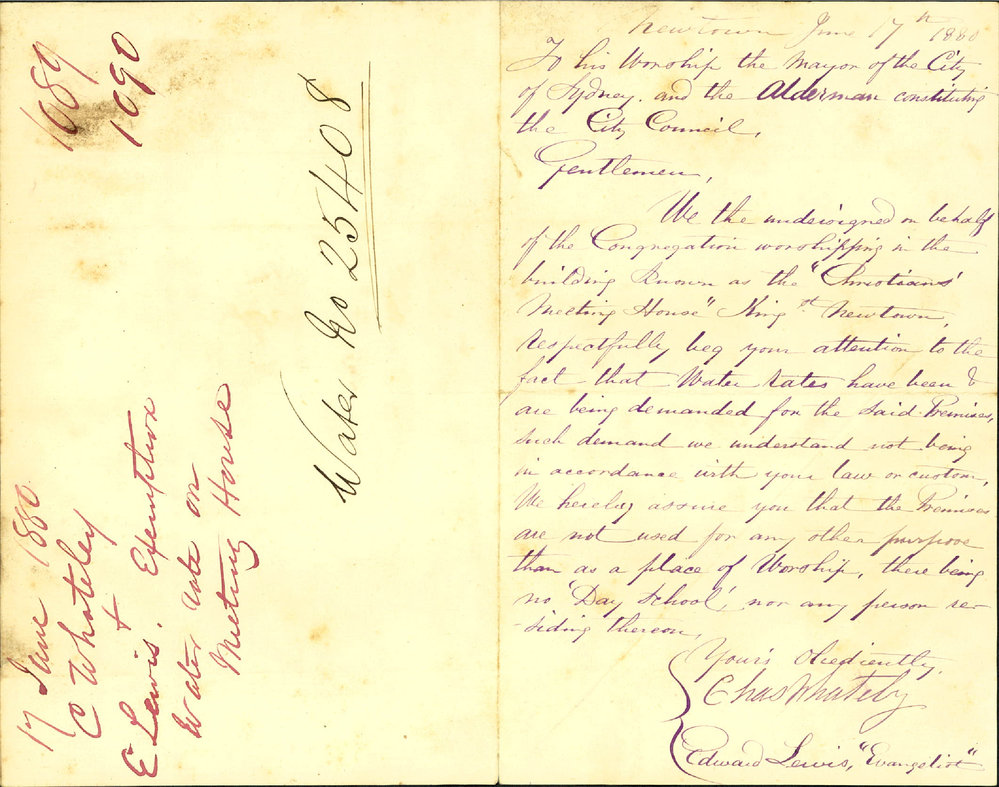 1089
1090
Water No 25408
17 June 1880
C Whateley
+
E Lewis. Exemption
Water rate on
Meeting House
Newtown June 17th 1880
To his Worship the Mayor of the City
of Sydney. and the Alderman constituting
the City Council,
Gentlemen,
We the undersigned on behalf
of the Congregation worshipping in the
building Known as the "Christians'
Meeting House" King St Newtown,
respectfully beg your attention to the
fact that Water rates have been &
are being demanded for the said Premises,
such demand we understand not being
in accordance with your law or custom,
We hereby assure you that the Premises
are not used for any other purpose
than as a place of Worship, there being
no 'Day School', nor any person re-
-siding thereon,
Yours Obediently,
Chas Whately
Edward Lewis, "Evangelist"